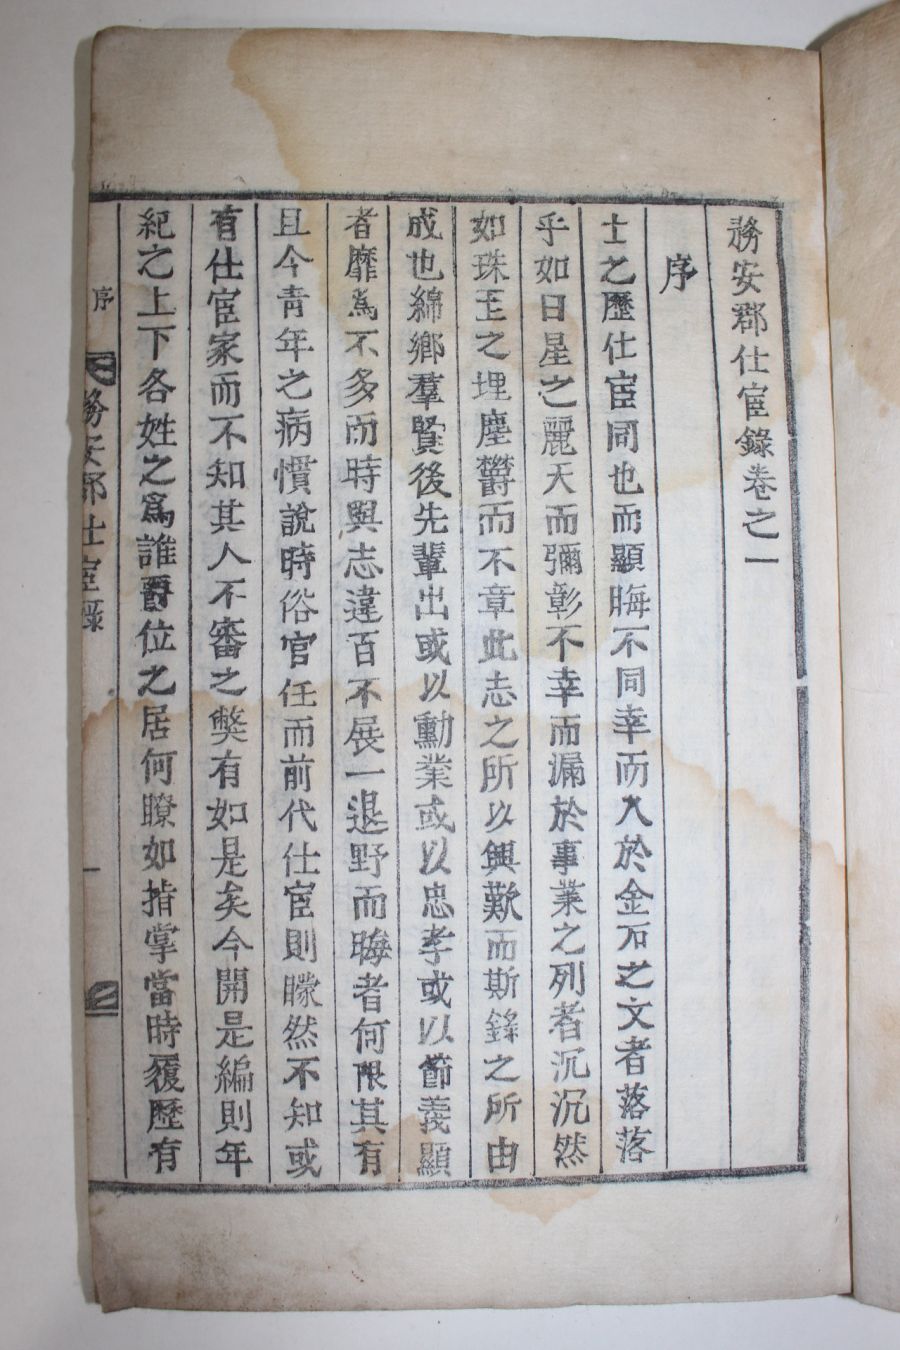 務安郡仕宦錄卷之一
序
士之歷仕宦同也而顯晦不同幸而入於金石之文者落落
乎如日星之麗天而彌彰不幸而漏於事業之列者沉沉然
如珠玉之埋塵欝而不章此志之所以興歎而斯錄之所由
成也綿鄉羣賢後先輩出或以勳業或以忠孝或以節義顯
者靡爲不多而時與志違百不展一退野而晦者何限其有
且今靑年之病慣說時俗官任而前代仕宦則矇然不知或
有仕宦家而不知其人不審之獘有如是矣今開是編則年
紀之上下各姓之爲誰爵位之居何瞭如指掌當時履歷有
序
務安郡仕宦錄
一